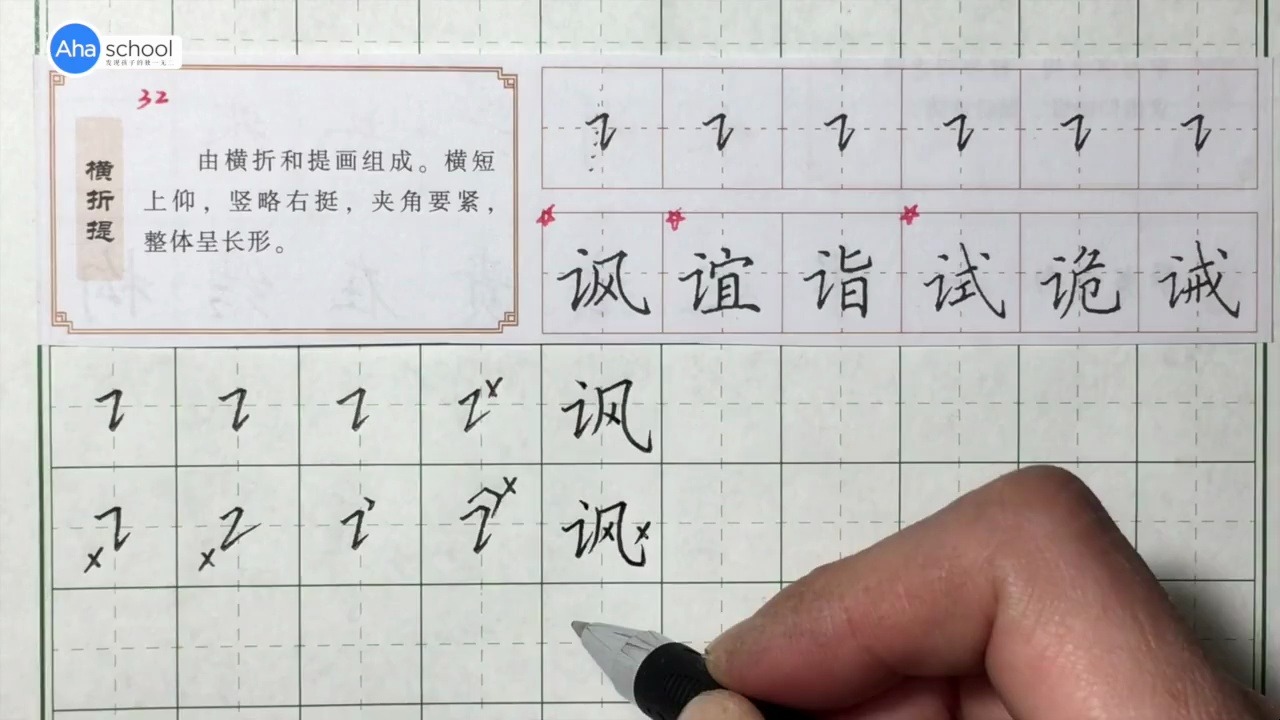 Aha school
发现孩子的独一无二
32
横折提
由横折和提画组成。横短
上仰，竖略右挺，夹角要紧，
整体呈长形。
讽 谊 诣 试 诡 诫
讽
讽